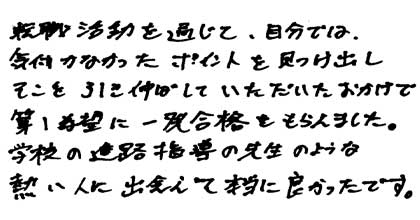 転職活動を通じて、自分では、
気付かなかったポイントを見つけ出し
そこを引き伸ばしていただいたおかげで
第1希望に一発合格をもらえました。
学校の進路指導の先生のような
熱い人に出会えて本当に良かったです。